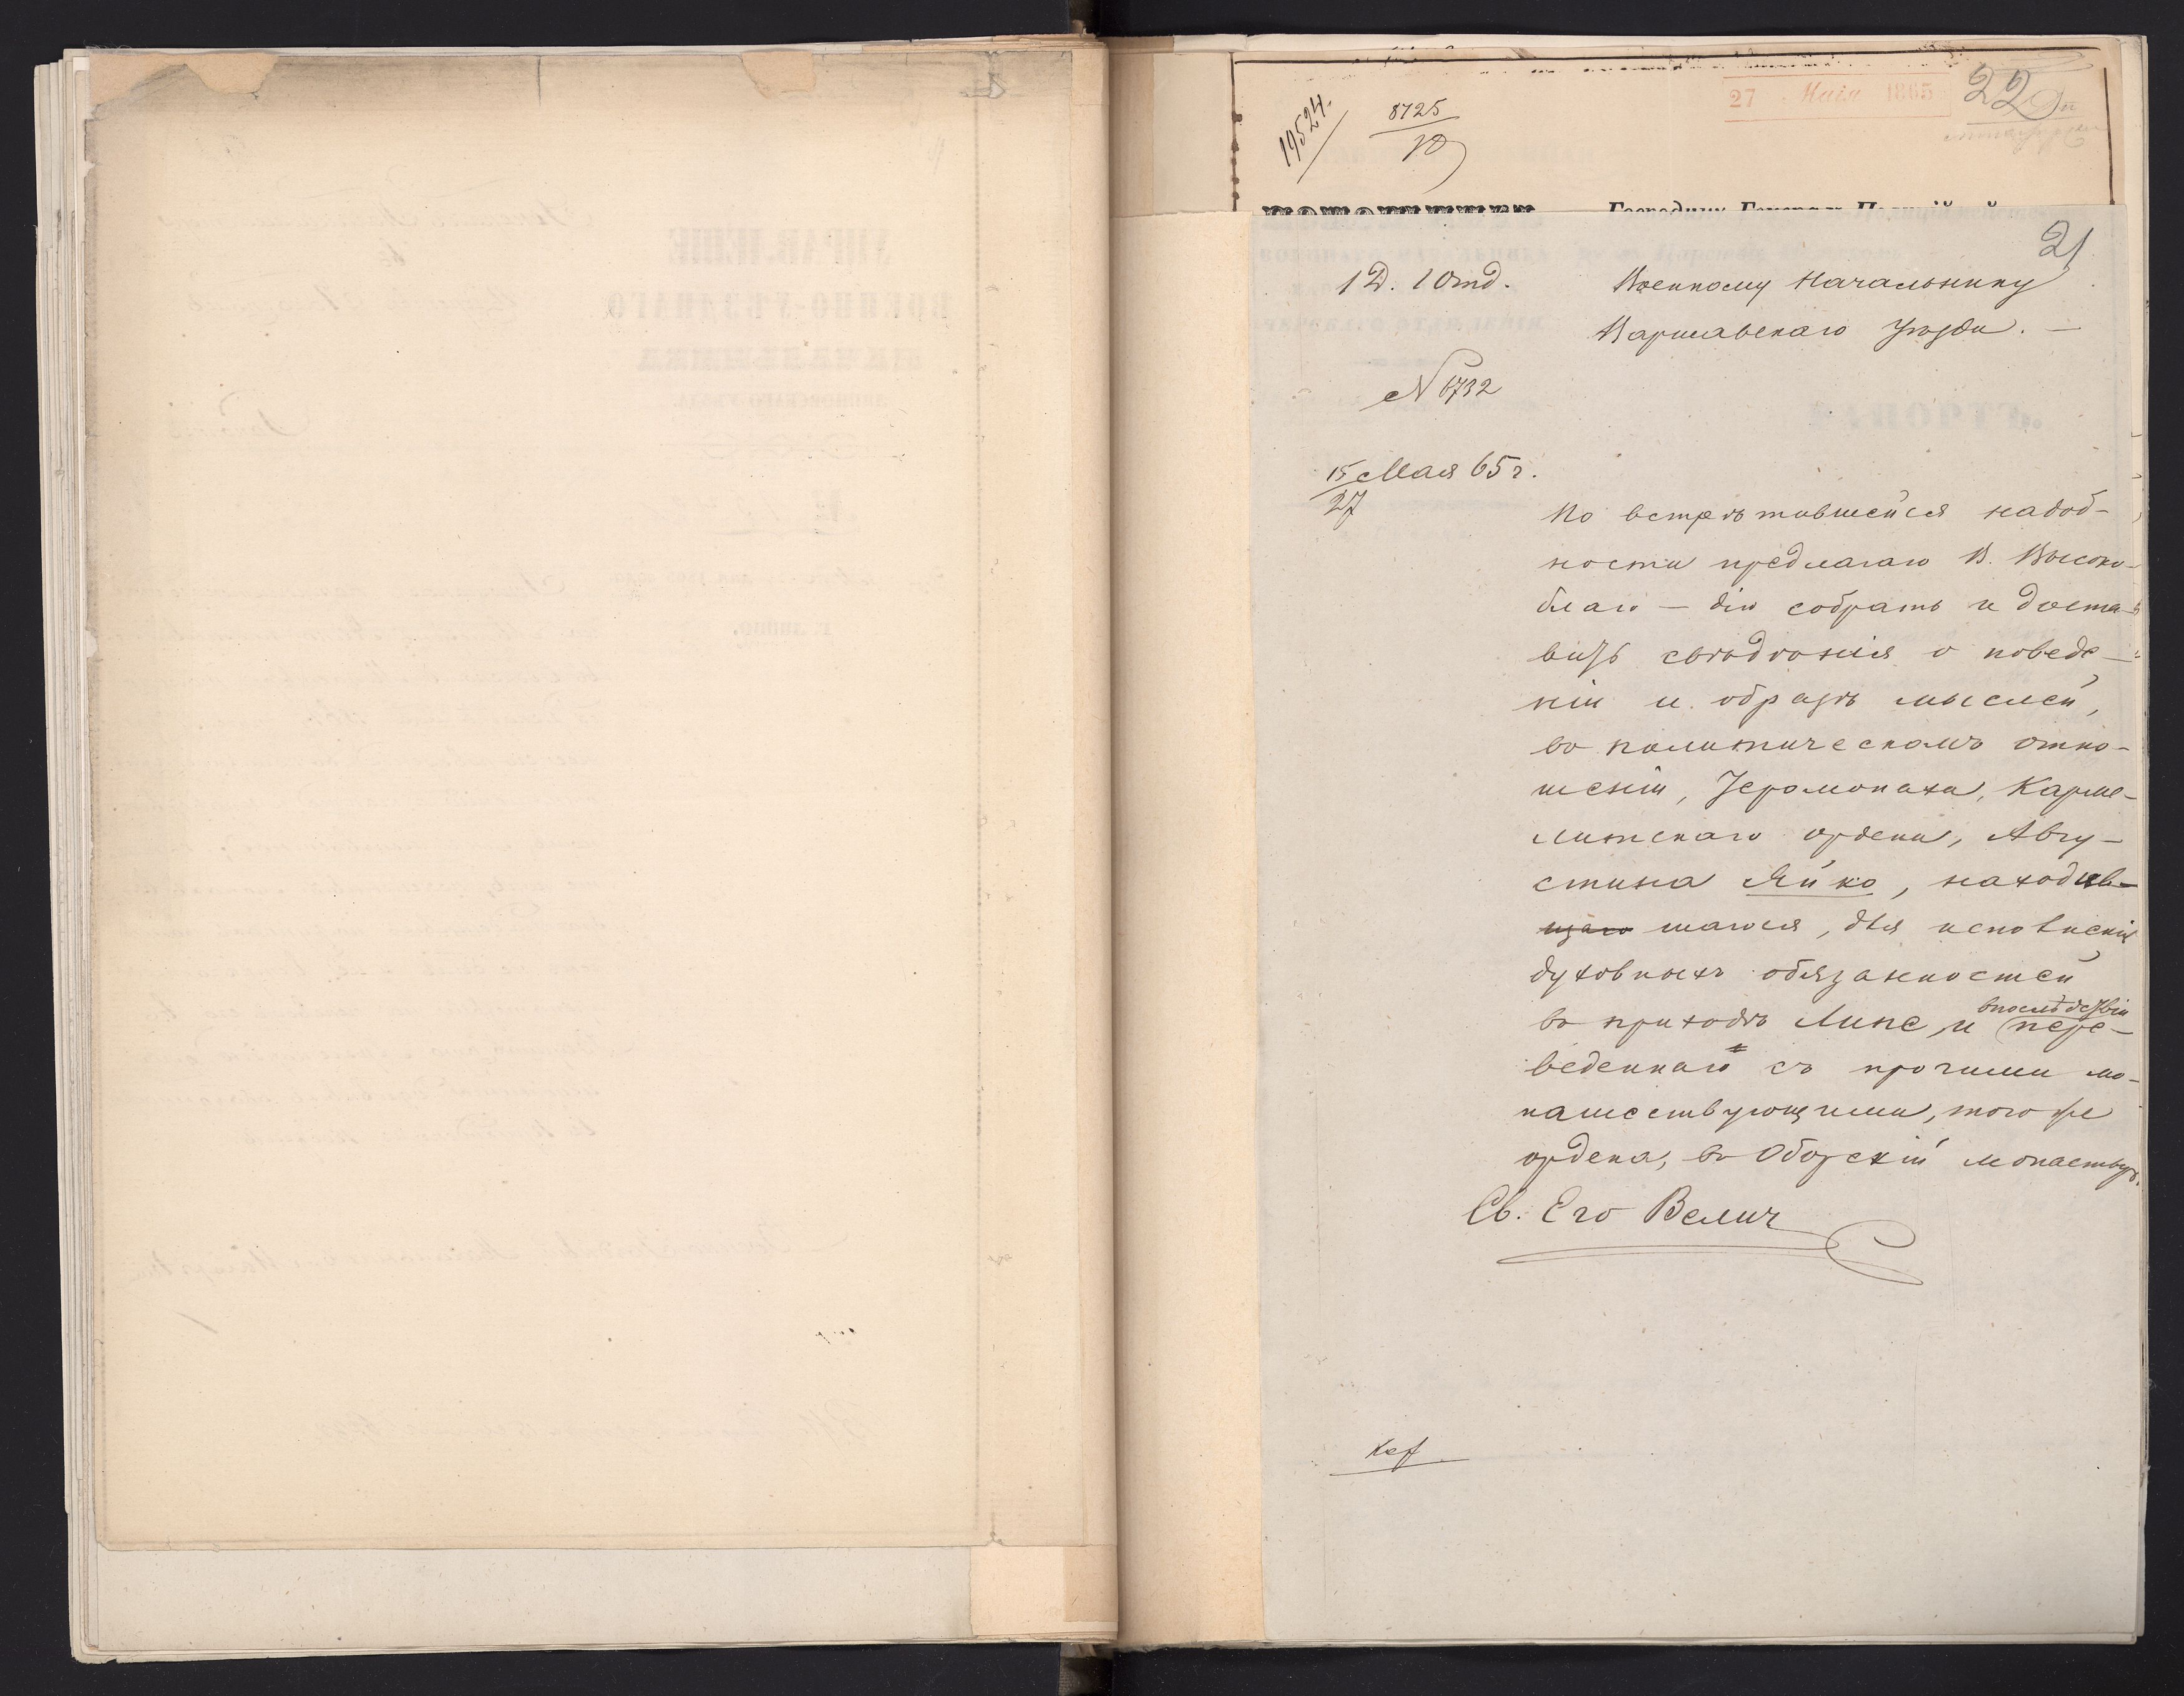 19524.
8725
10
27 Мая 1865
22
21
1 Д. 1 Отд.
Военному Начальнику
Варшавскаго Уѣзда. —
№ 6732
15/27 Мая 65 г.
По встрѣтившейся надоб-
ности предлагаю В. Высоко-
благо — дію собрать и доста-
вить свѣдѣнія о поведе-
ніи и образѣ мыслей,
въ политическомъ отно-
шеніи, Іеромонаха, Карме-
литскаго ордена, Авгу-
стина Яйко, находив-
щаго шагося, для исполненія
духовныхъ обязанностей
въ приходѣ Липе, и впослѣдствіи пере-
веденнаго съ прочими мо-
нашествующими, того же
ордена, въ Оборскій монастырь.
Св. Его Велич